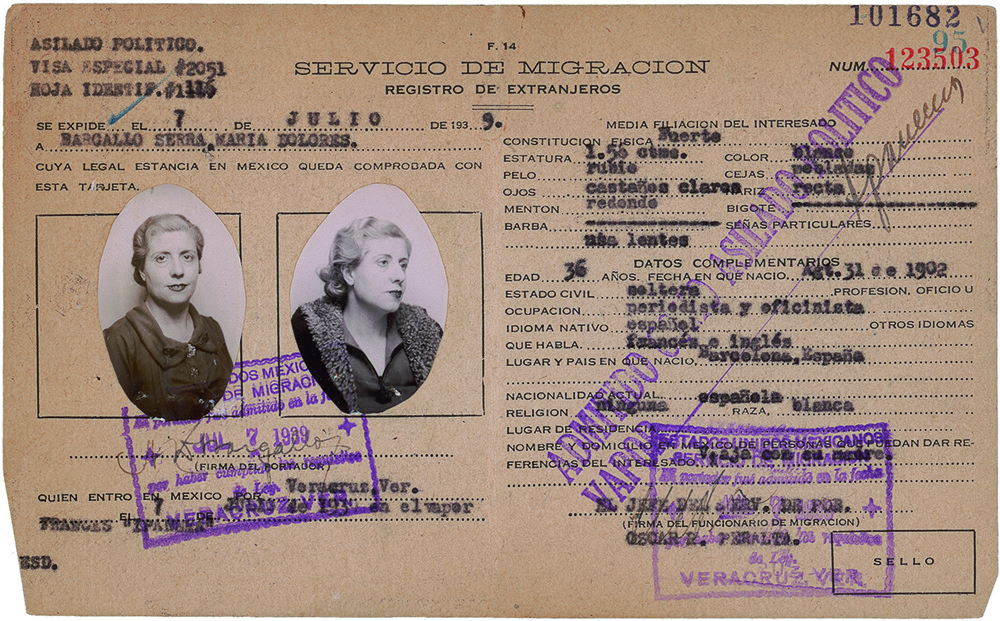 101682
95
ASILADO POLITICO.
VISA ESPECIAL #2051
HOJA IDENTIF.#1116
F. 14
SERVICIO DE MIGRACION
REGISTRO DE EXTRANJEROS
NUM. 123503
SE EXPIDE EL 7 DE JULIO DE 1939.
A BARGALLO SERRA, MARIA DOLORES.
CUYA LEGAL ESTANCIA EN MEXICO QUEDA COMPROBADA CON
ESTA TARJETA.
(FIRMA DEL PORTADOR)
QUIEN ENTRO EN MEXICO POR Veracruz,Ver.
EL 7 de julio de 1939 en el vapor
FRANCES
ESD.
MEDIA FILIACION DEL INTERESADO
CONSTITUCION FISICA Fuerte
ESTATURA 1.50 ctms. COLOR blanco
PELO rubio CEJAS pobladas
OJOS castaños claros NARIZ recta
MENTON redondo BIGOTE
BARBA SEÑAS PARTICULARES
usa lentes
DATOS COMPLEMENTARIOS
EDAD 36 AÑOS. FECHA EN QUE NACIO Agt.31 de 1902
ESTADO CIVIL soltera PROFESION, OFICIO U
OCUPACION periodista y oficinista
IDIOMA NATIVO español OTROS IDIOMAS
QUE HABLA francés e inglés
LUGAR Y PAIS EN QUE NACIO Barcelona,España
NACIONALIDAD ACTUAL española
RELIGION ninguna RAZA blanca
LUGAR DE RESIDENCIA
NOMBRE Y DOMICILIO EN MEXICO DE PERSONAS QUE PUEDAN DAR RE-
FERENCIAS DEL INTERESADO Viaja con su madre.
EL JEFE DEL SERV. DE POB.
(FIRMA DEL FUNCIONARIO DE MIGRACION)
OSCAR R. PERALTA.
SELLO
ADMITIDO COMO ASILADO POLITICO
ESTADOS UNIDOS MEXICANOS
SERVICIO DE MIGRACION
El portador fué admitido en la fecha
JUL 7 1939
por haber cumplido los requisitos
de Ley.
VERACRUZ, VER.
ESTADOS UNIDOS MEXICANOS
SERVICIO DE MIGRACION
El portador fué admitido en la fecha
los requisitos
de Ley.
VERACRUZ, VER.